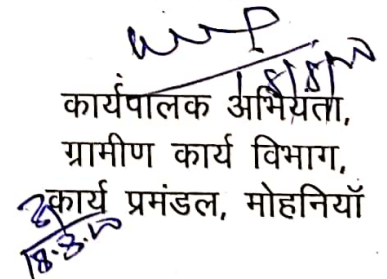 18/8/20
कार्यपालक अभियंता,
ग्रामीण कार्य विभाग,
कार्य प्रमंडल, मोहनियाँ
18.8.20